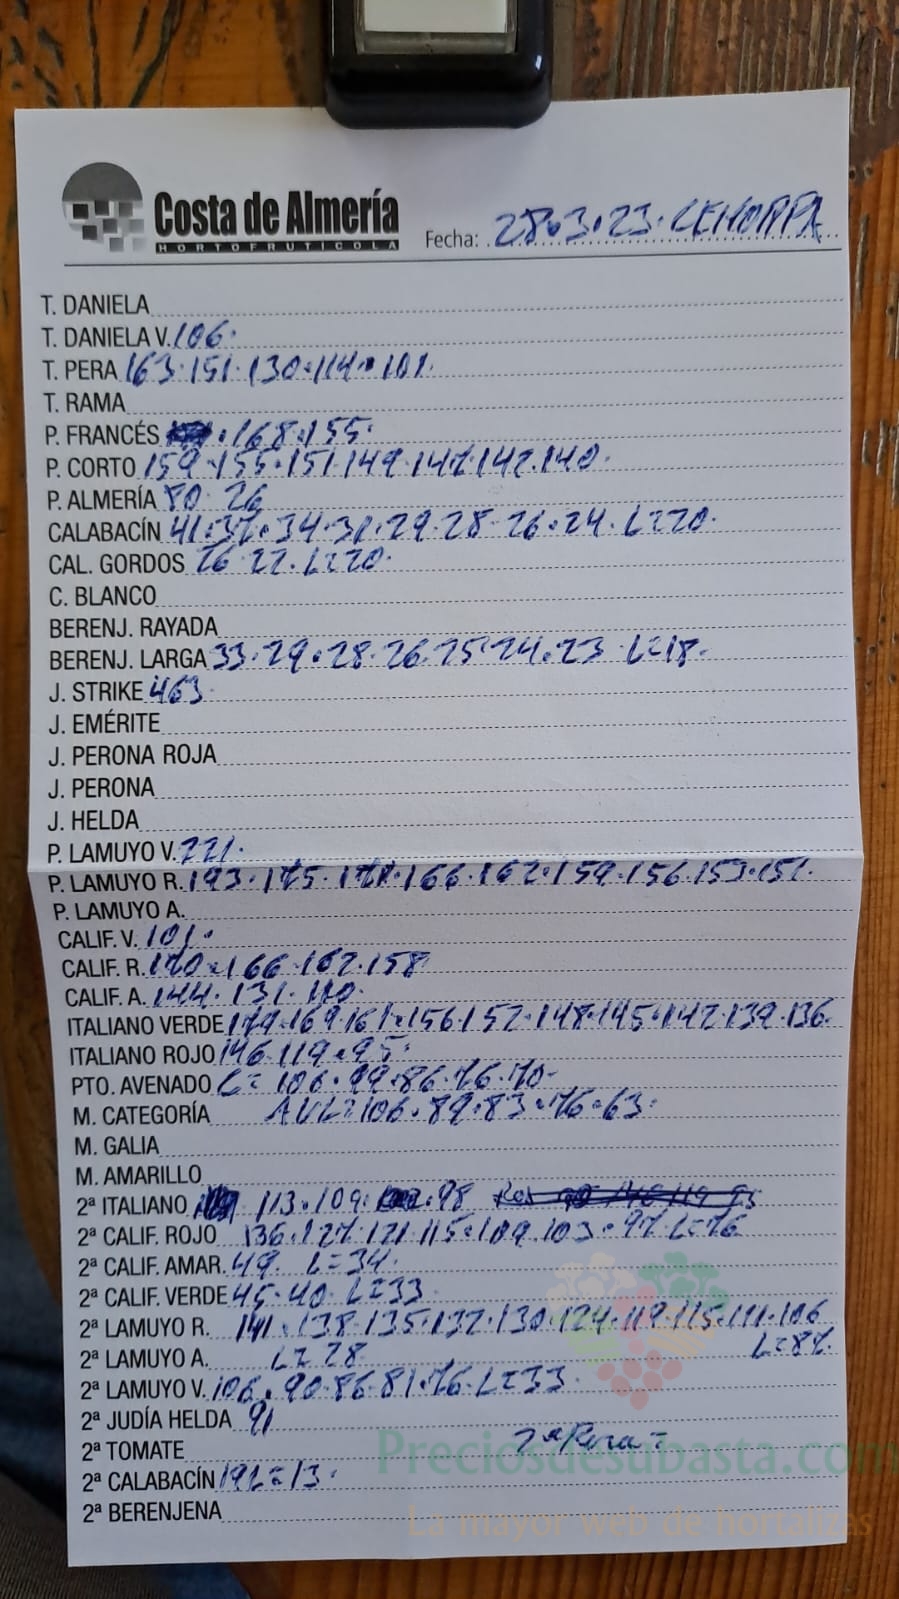 Costa de Almería
HORTOFRUTÍCOLA
Fecha: 28.3.23. CEHORPA
T. DANIELA
T. DANIELA V. 106.
T. PERA 163.151.130.114.101.
T. RAMA
P. FRANCÉS .168.155.
P. CORTO 159.155.151.149.147.142.140.
P. ALMERÍA 80 26
CALABACÍN 41.37.34.31.29.28.26.24. L=20.
CAL. GORDOS 26.22. L=20.
C. BLANCO
BERENJ. RAYADA
BERENJ. LARGA 33.29.28.26.25.24.23 L=18.
J. STRIKE 463.
J. EMÉRITE
J. PERONA ROJA
J. PERONA
J. HELDA
P. LAMUYO V. 221.
P. LAMUYO R. 193.175.171.166.162.159.156.153.151.
P. LAMUYO A.
CALIF. V. 101.
CALIF. R. 170.166.162.158
CALIF. A. 144.131.110.
ITALIANO VERDE 179.169.161.156.152.148.145.142.139.136.
ITALIANO ROJO 146.119.95.
PTO. AVENADO L= 106.99.86.76.70.
M. CATEGORÍA AVL=106.89.83.76.63.
M. GALIA
M. AMARILLO
2ª ITALIANO 113.109. .98
2ª CALIF. ROJO 136.127.121.115.109.103.97. L=76
2ª CALIF. AMAR. 49. L=34.
2ª CALIF. VERDE 45.40. L=33.
2ª LAMUYO R. 141.138.135.132.130.124.119.115.111.106
L=87.
2ª LAMUYO A. L=28
2ª LAMUYO V. 106.90.86.81.76. L=33.
2ª JUDÍA HELDA 91
2ª TOMATE 2ª Pera=
2ª CALABACÍN 19 L=13.
2ª BERENJENA
Preciosdesubasta.com
La mayor web de hortalizas